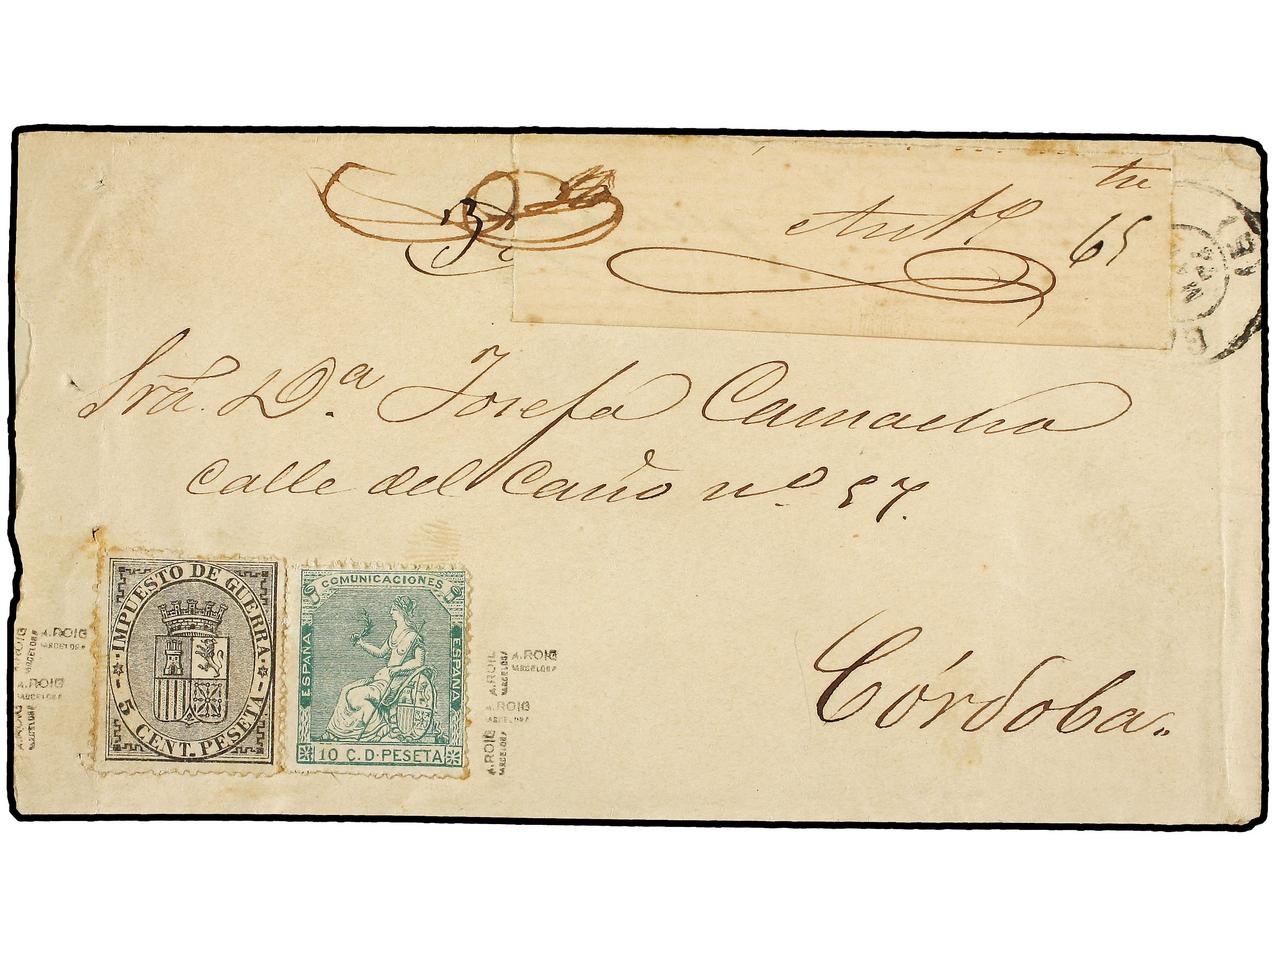 3
tu
Autº
65
Sra. Dª Josefa Camacho
calle del Caño nº 57.
Córdoba.
IMPUESTO DE GUERRA
5 CENT. PESETA
COMUNICACIONES
ESPAÑA
ESPAÑA
10 C. D. PESETA
A. ROIG
BARCELONA
A. ROIG
BARCELONA
A. ROIG
BARCELONA
A. ROIG
BARCELONA
A. ROIG
BARCELONA
A. ROIG
BARCELONA
A. ROIG
BARCELONA
A. ROIG
BARCELONA